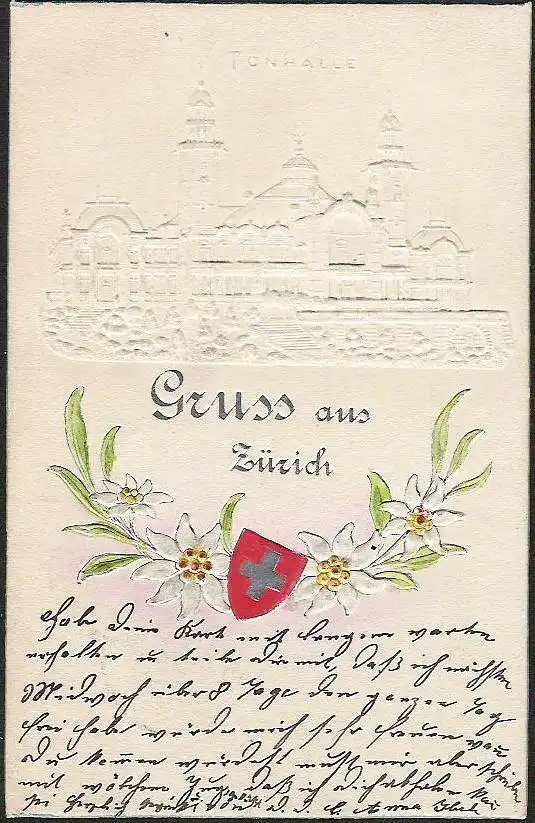 TONHALLE
Gruss aus
Zürich
Habe deine Kart mit langem warten
erhalten u teile dir mit, daß ich nächsten
Midwoch über 8 Tage den ganzen Tag
frei habe würde mich sehr freuen wen
du kommen würdest must mir aber schreiben
mit wölchem Zug daß ich dich abholen
sei herzlich gegrüßt Anna